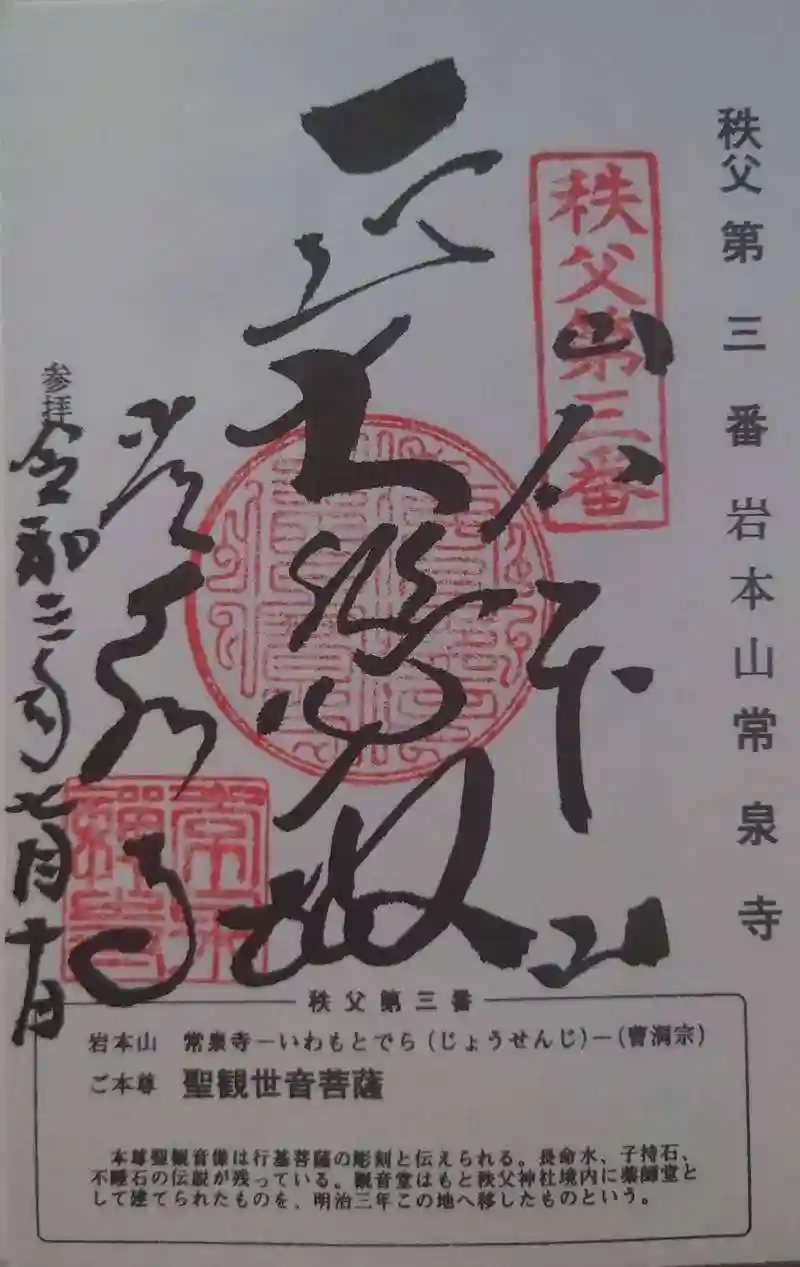 秩父第三番岩本山常泉寺
秩父第三番
岩本山
常泉寺
参拝
令和三年七月十日
秩父第三番
岩本山 常泉寺－いわもとでら（じょうせんじ）－（曹洞宗）
ご本尊 聖観世音菩薩
本尊聖観音像は行基菩薩の彫刻と伝えられる。長命水、子持石、
不睡石の伝説が残っている。観音堂はもと秩父神社境内に薬師堂と
して建てられたものを、明治三年この地へ移したものという。